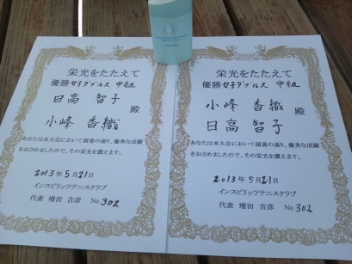 栄光をたたえて
優勝 女子ダブルス 中級
日高 智子
小峰 香織 殿
あなたは本大会において頭書の通り、優秀な成績
をおさめましたので、その栄光を讃えます。
2013年5月21日
インスピリッツテニスクラブ
代表 増田 吉彦 No302
栄光をたたえて
優勝 女子ダブルス 中級
小峰 香織
日高 智子 殿
あなたは本大会において頭書の通り、優秀な成績
をおさめましたので、その栄光を讃えます。
2013年5月21日
インスピリッツテニスクラブ
代表 増田 吉彦 No302